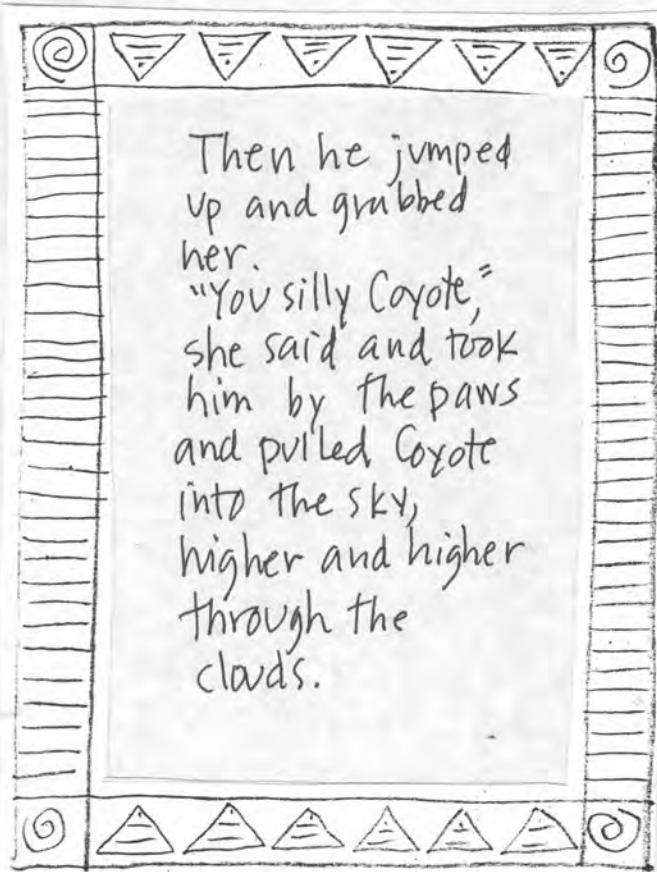 Then he jumped
up and grabbed
her.
"You silly Coyote,"
she said and took
him by the paws
and pulled Coyote
into the sky,
higher and higher
through the
clouds.